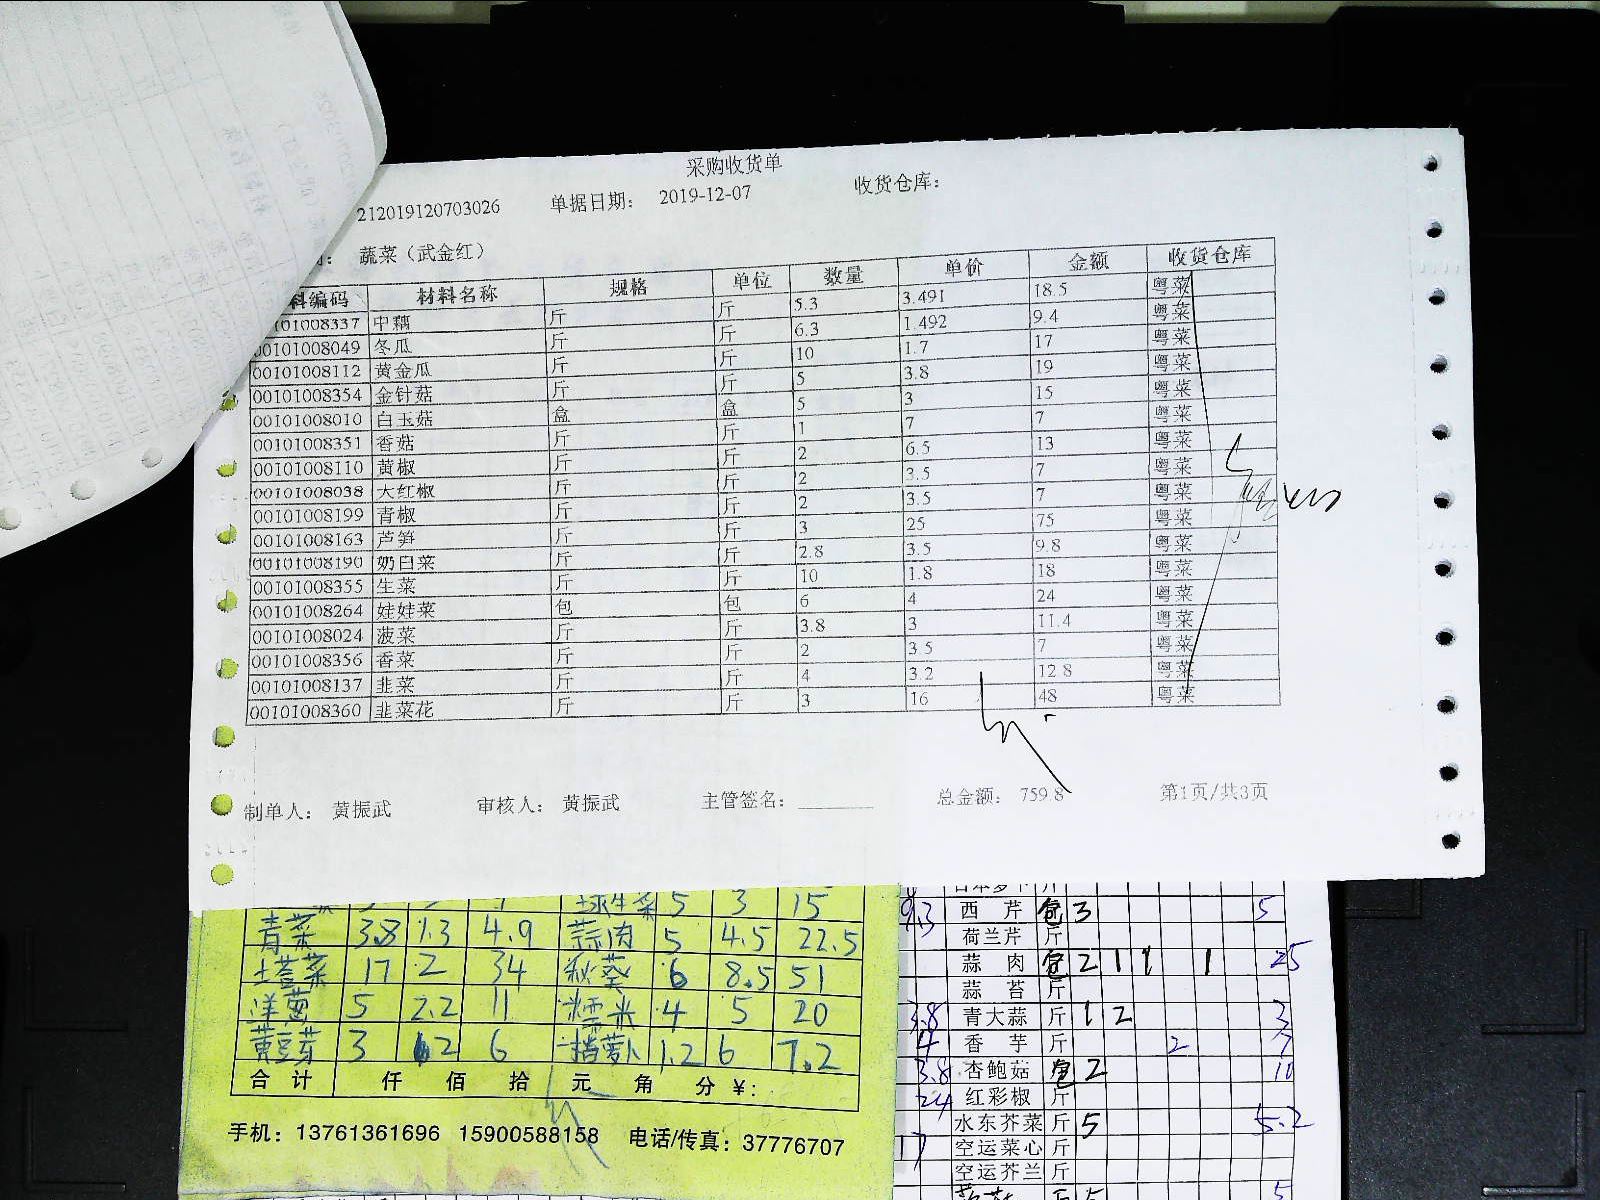 采购收货单
212019120703026 单据日期： 2019-12-07 收货仓库：
： 蔬菜（武金红）
料编码 材料名称 规格 单位 数量 单价 金额 收货仓库
101008337 中藕 斤 斤 5.3 3.491 18.5 粤菜
00101008049 冬瓜 斤 斤 6.3 1.492 9.4 粤菜
00101008112 黄金瓜 斤 斤 10 1.7 17 粤菜
00101008354 金针菇 斤 斤 5 3.8 19 粤菜
00101008010 白玉菇 盒 盒 5 3 15 粤菜
00101008351 香菇 斤 斤 1 7 7 粤菜
00101008110 黄椒 斤 斤 2 6.5 13 粤菜
00101008038 大红椒 斤 斤 2 3.5 7 粤菜
00101008199 青椒 斤 斤 2 3.5 7 粤菜
00101008163 芦笋 斤 斤 3 25 75 粤菜
00101008190 奶白菜 斤 斤 2.8 3.5 9.8 粤菜
00101008355 生菜 斤 斤 10 1.8 18 粤菜
00101008264 娃娃菜 包 包 6 4 24 粤菜
00101008024 菠菜 斤 斤 3.8 3 11.4 粤菜
00101008356 香菜 斤 斤 2 3.5 7 粤菜
00101008137 韭菜 斤 斤 4 3.2 12.8 粤菜
00101008360 韭菜花 斤 斤 3 16 48 粤菜
制单人： 黄振武 审核人： 黄振武 主管签名： 总金额： 759.8 第1页/共3页
球生菜 5 3 15
青菜 3.8 1.3 4.9 蒜肉 5 4.5 22.5
塔菜 17 2 34 秋葵 6 8.5 51
洋葱 5 2.2 11 糯米 4 5 20
黄豆芽 3 2 6 1.2 6 7.2
合计 仟 佰 拾 元 角 分 ￥：
手机：13761361696 15900588158 电话/传真：37776707
9.3 西芹 包 3 5
荷兰芹 斤
蒜肉 包 2 1 1 1 25
蒜苔 斤
3.8 青大蒜 斤 1 2 3
4 香芋 斤 2 7
3.8 杏鲍菇 包 2 10
24 红彩椒 斤
水东芥菜 斤 5 5.2
17 空运菜心 斤
空运芥兰 斤
5 5